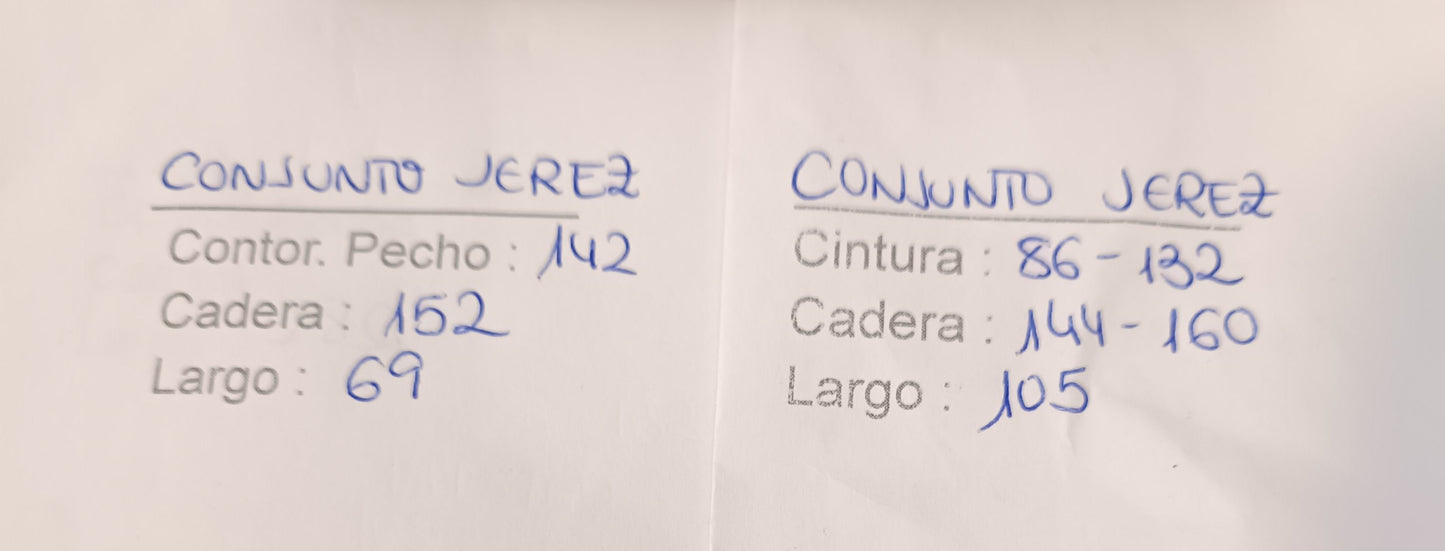 CONJUNTO JEREZ
Contor. Pecho : 142
Cadera : 152
Largo : 69
CONJUNTO JEREZ
Cintura : 86-132
Cadera : 144-160
Largo : 105